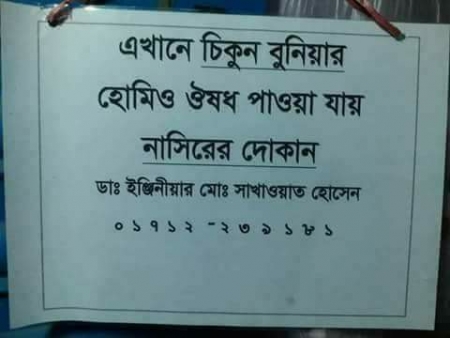 এখানে চিকুন বুনিয়ার
হোমিও ঔষধ পাওয়া যায়
নাসিরের দোকান
ডাঃ ইঞ্জিনীয়ার মোঃ সাখাওয়াত হোসেন
০১৭১২-২৩৯১৮১